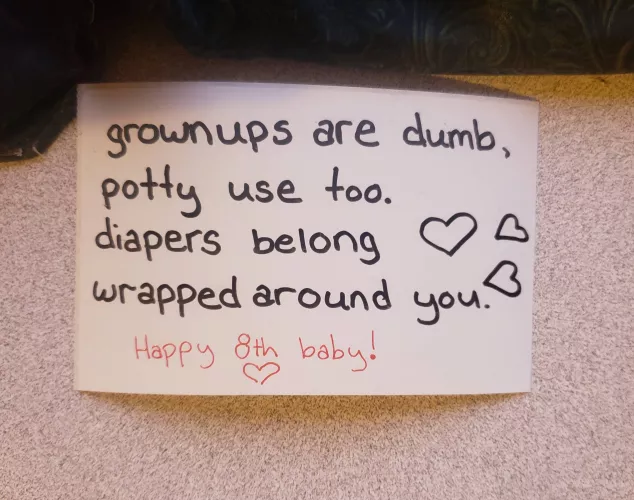 grownups are dumb,
potty use too.
diapers belong
wrapped around you.
Happy 8th baby!